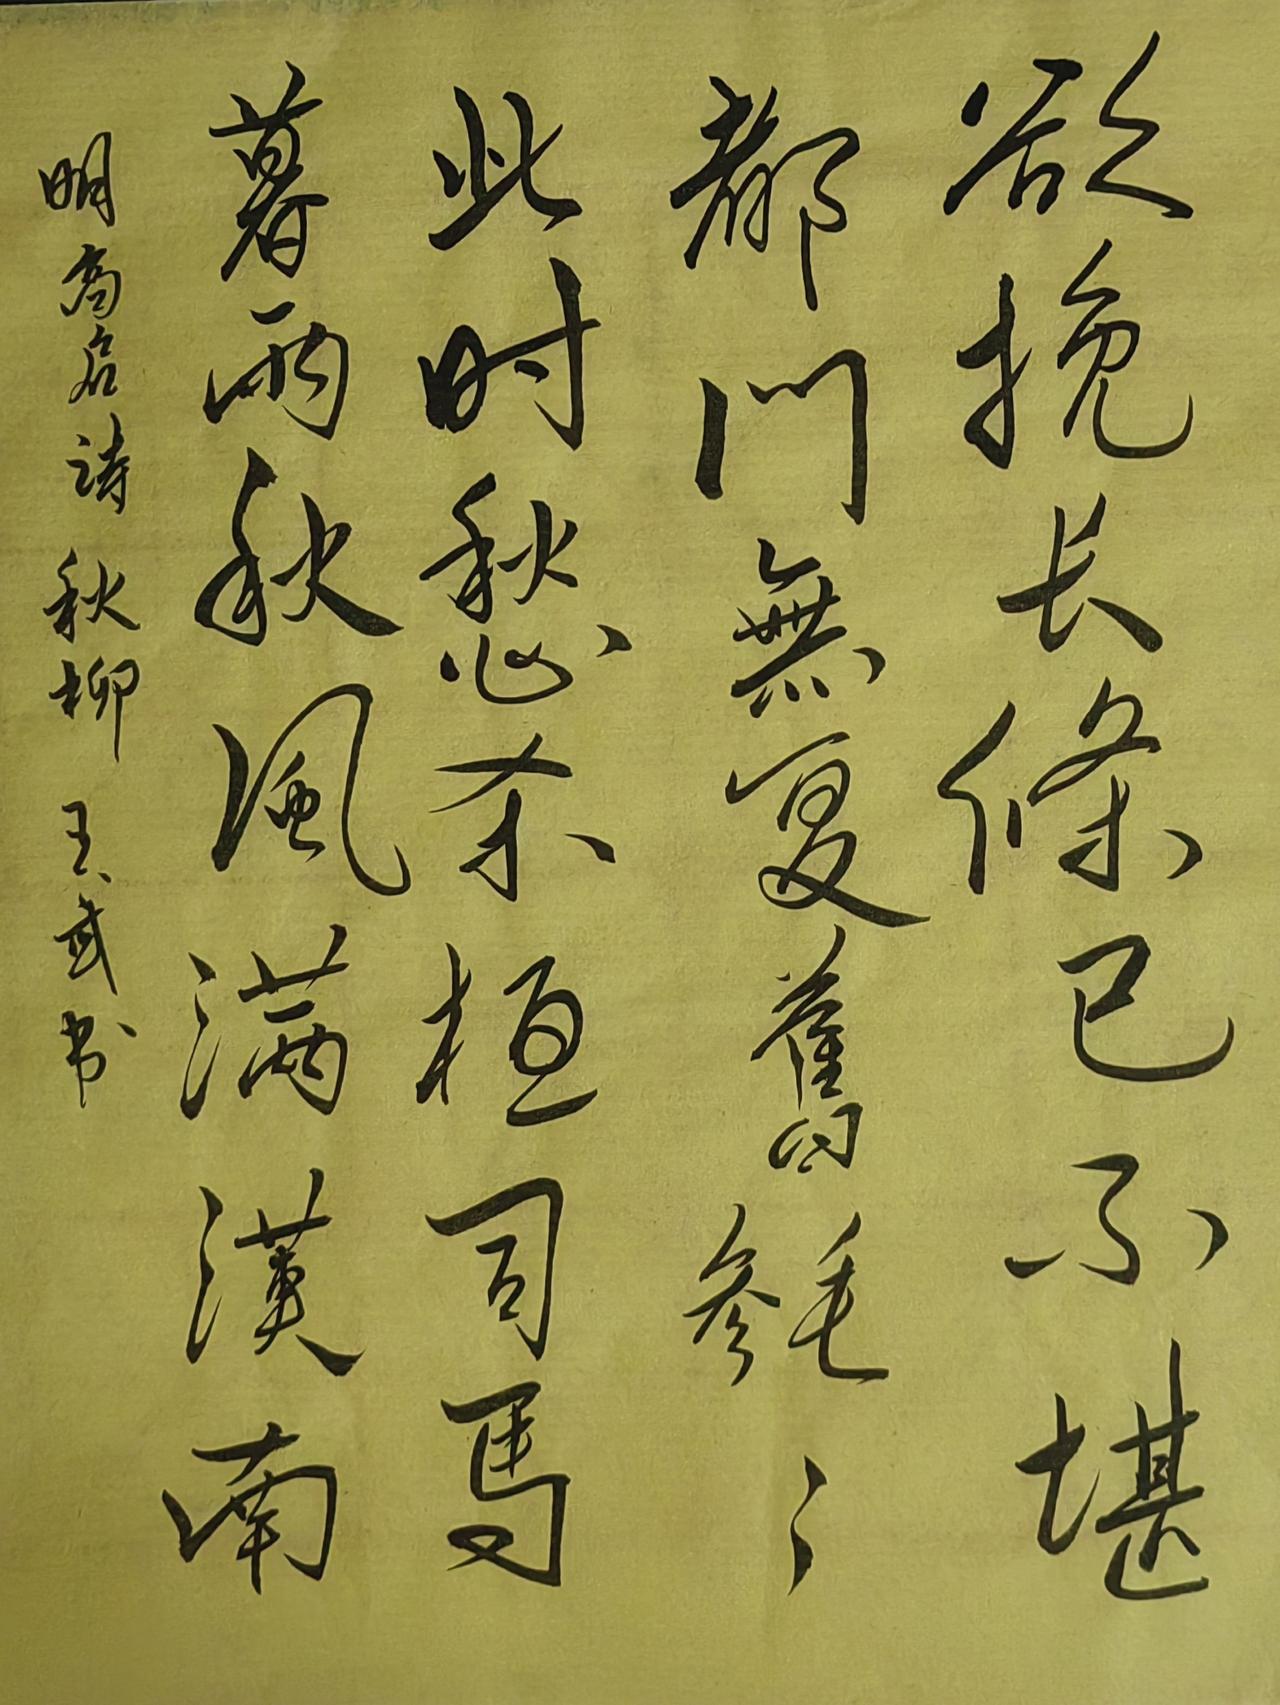 欲挽长條已不堪
都門無复舊毵〻
此时愁杀桓司馬
暮雨秋風满漢南
明高启诗 秋柳 王武书